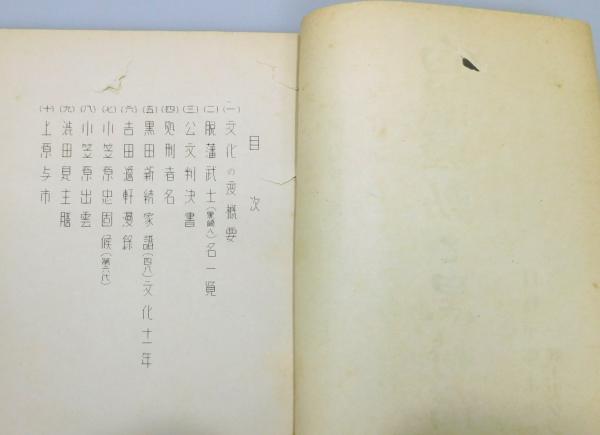 目次
(一)文化の変概要
(二)脱藩武士(黒崎へ)名一覧
(三)公文判決書
(四)処刑者名
(五)黒田新続家譜(四八)文化十一年
(六)吉田濨軒漫録
(七)小笠原忠固候(第六代)
(八)小笠原出雲
(九)渋田見主膳
(十)上原与市